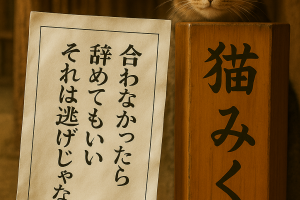 合わなかったら
辞めてもいい
それは逃げじゃな
猫みく